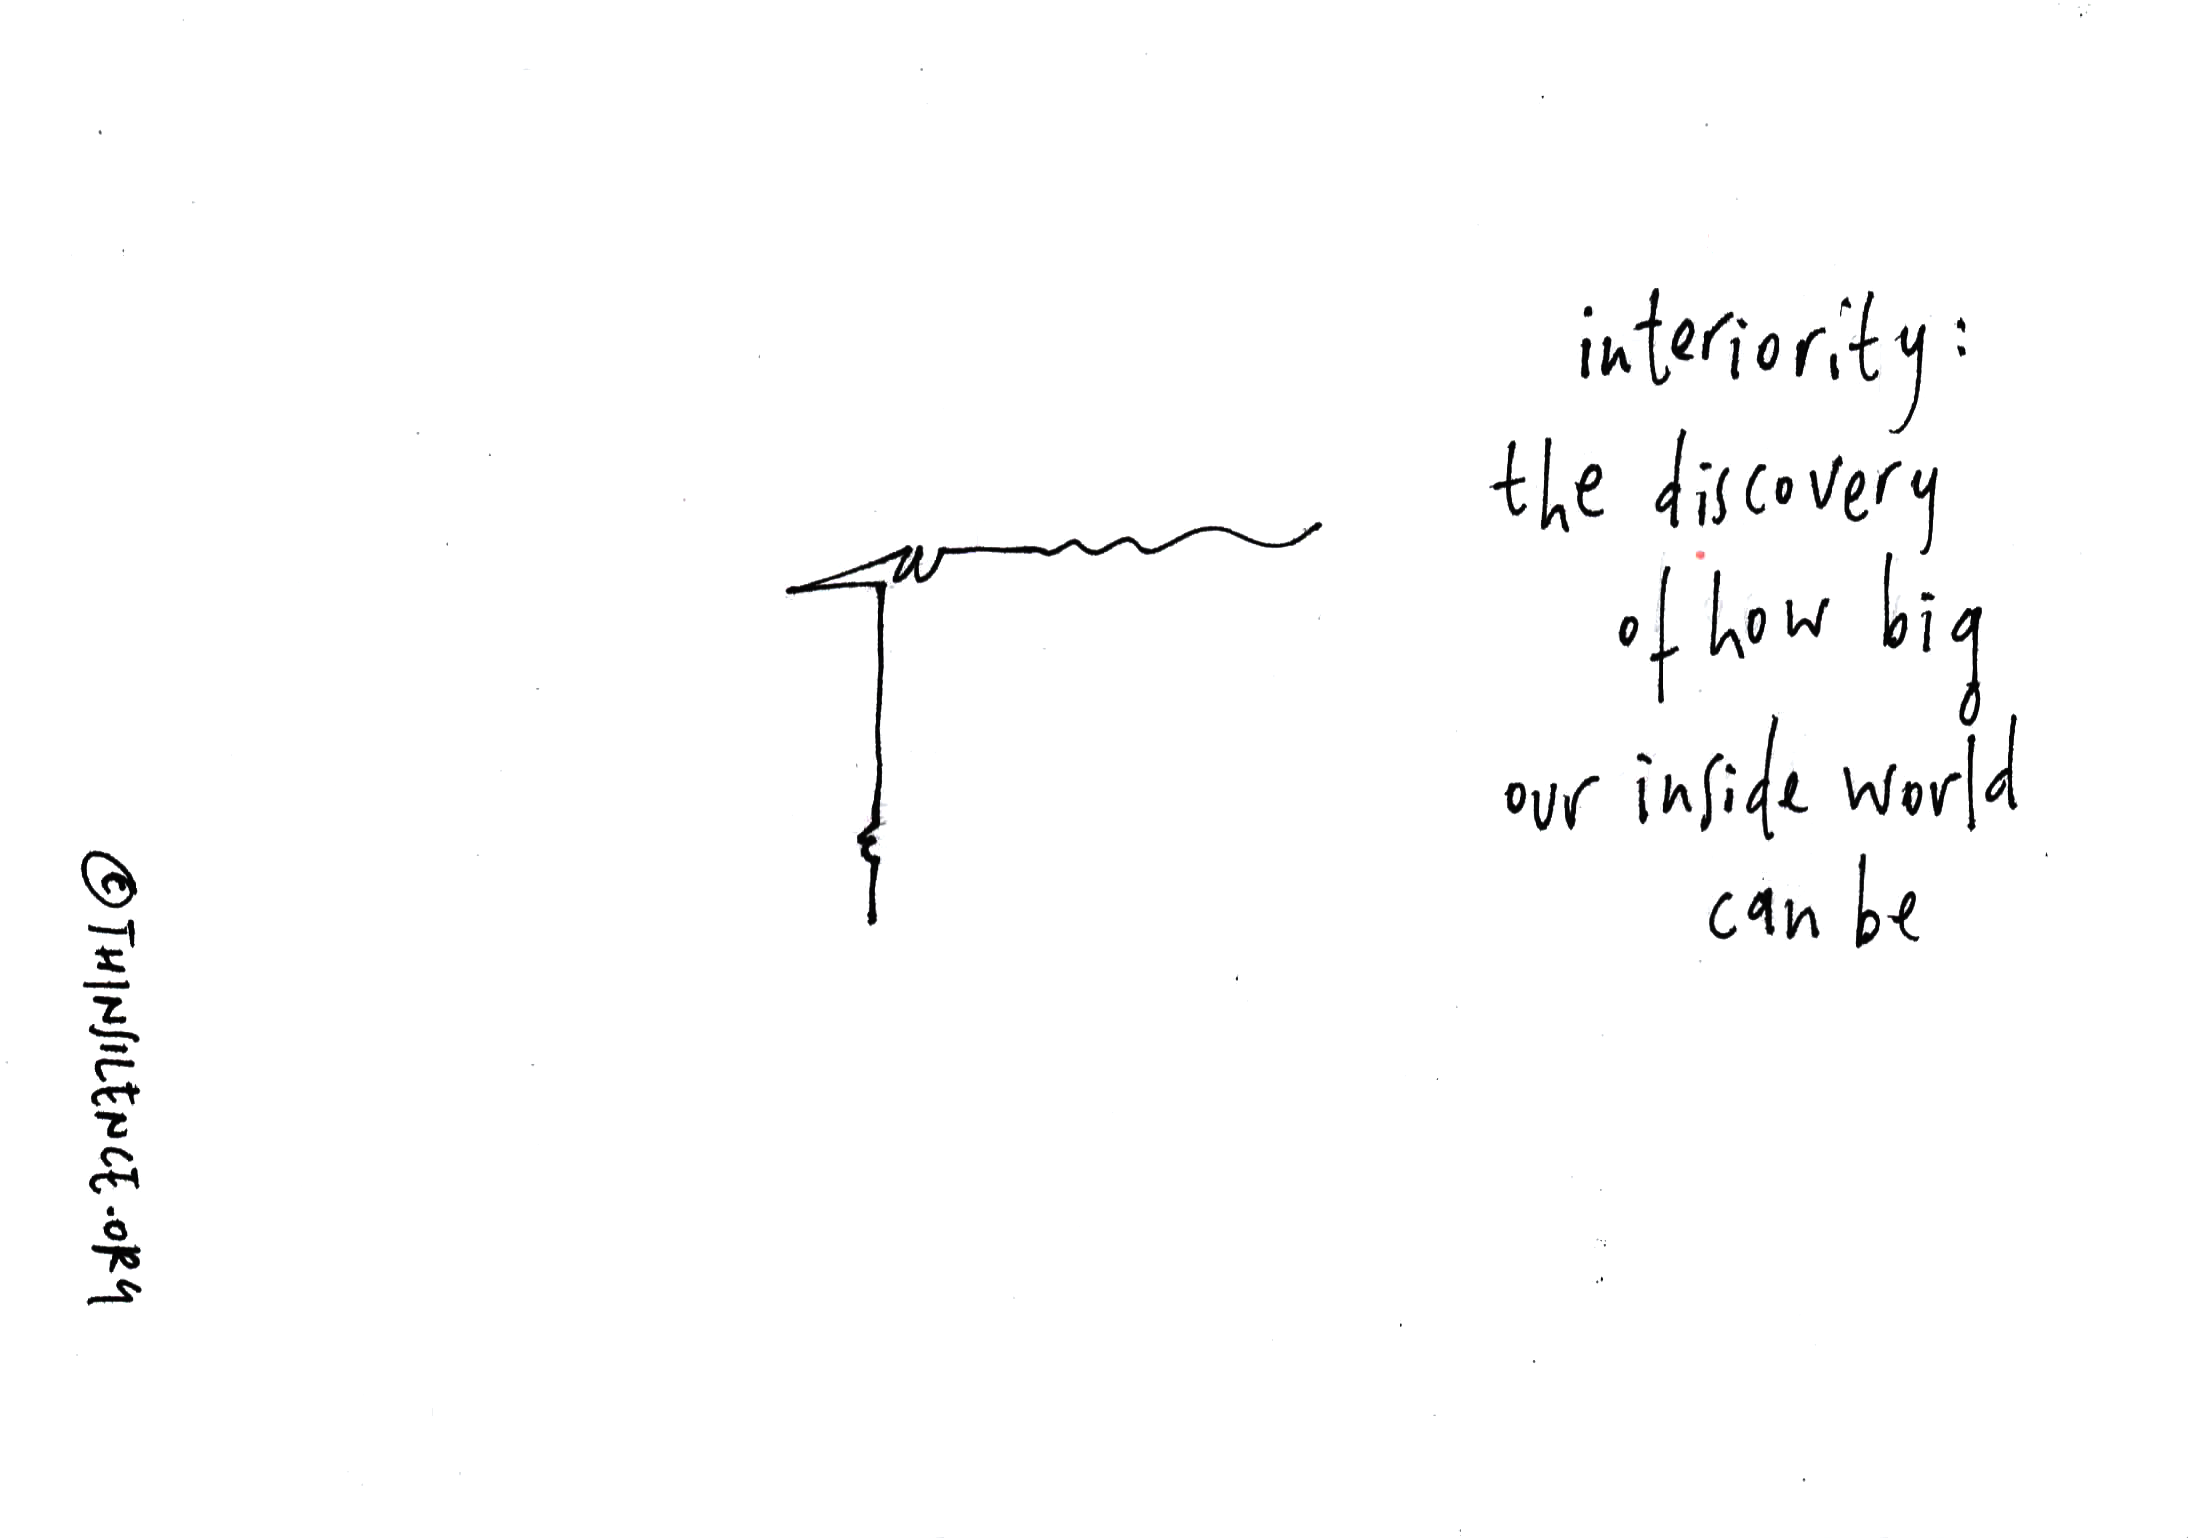 interiority:
the discovery
of how big
our inside world
can be
©THINSILENCE.ORG